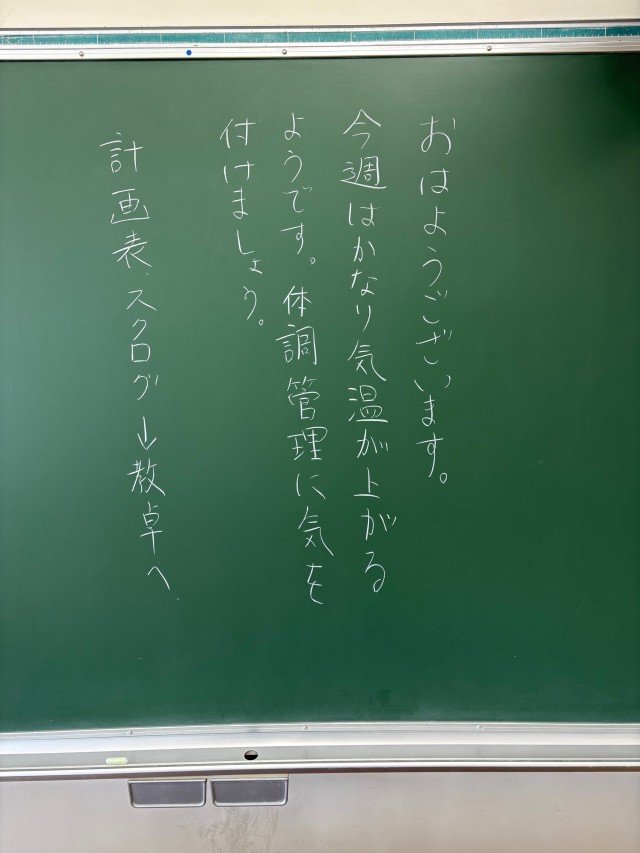 おはようございます。
今週はかなり気温が上がる
ようです。体調管理に気を
付けましょう。
計画表、スクログ→教卓へ